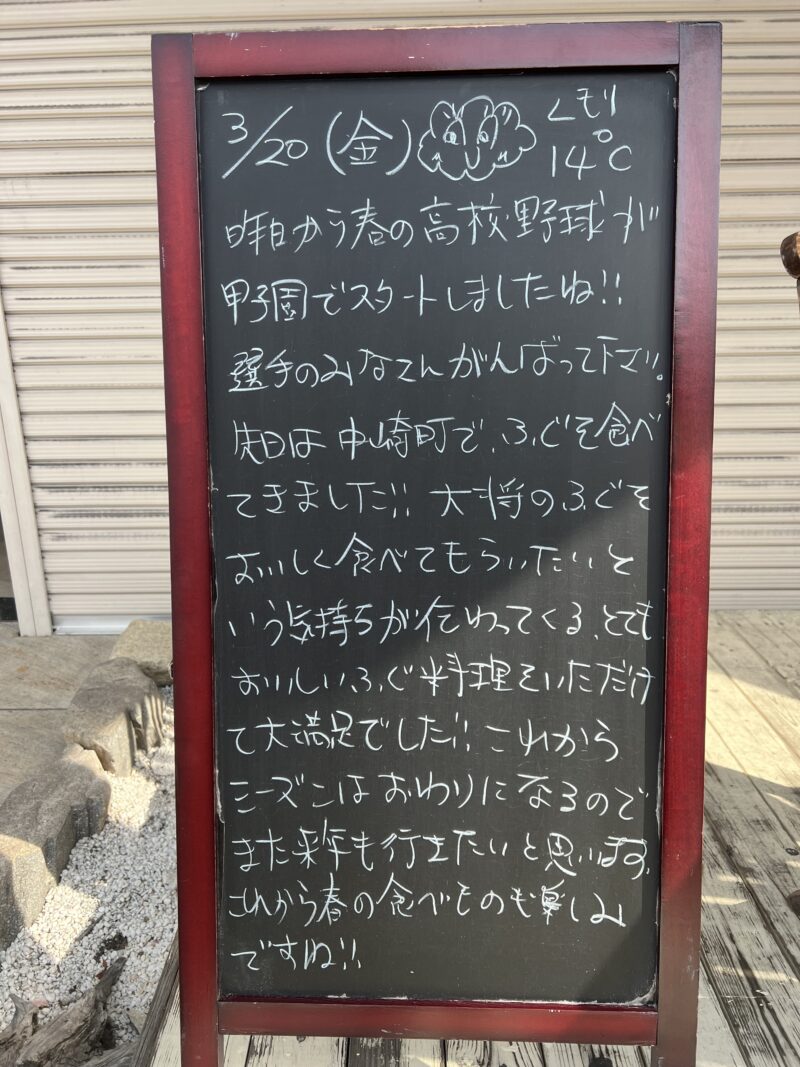 3/20 (金) くもり
14℃
昨日から春の高校野球が
甲子園でスタートしましたね!!
選手のみなさんがんばって下さい。
先日は中崎町で、ふぐを食べ
てきました!! 大将のふぐを
おいしく食べてもらいたいと
いう気持ちが伝わってくる、とても
おいしいふぐ料理をいただけ
て大満足でした!! これから
シーズンはおわりになるので
また来年も行きたいと思います。
これから春の食べものも楽しみ
ですね!!